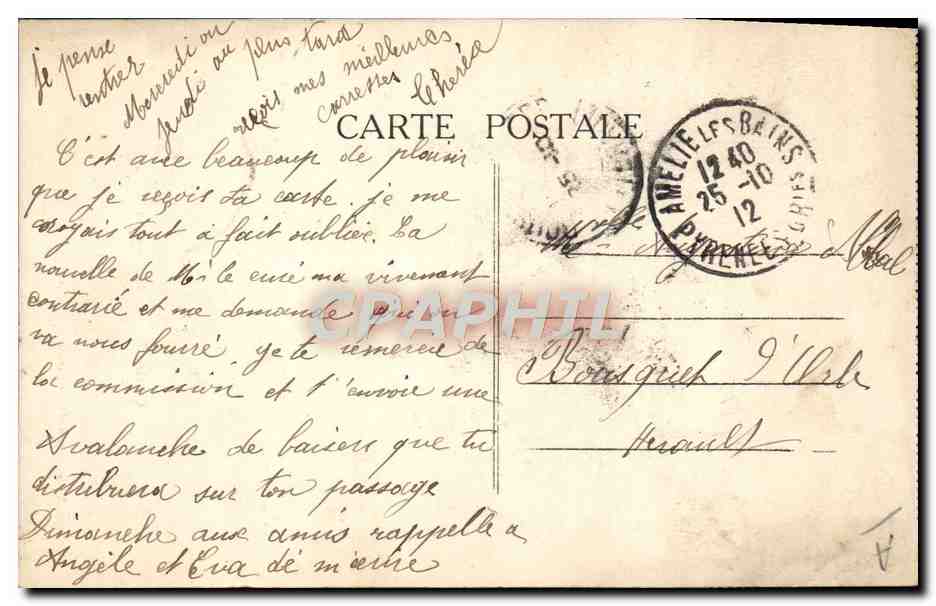 je pense
rentrer
Mercredi ou
jeudi au plus tard
reçois mes meilleures
carresses
CARTE POSTALE
C'est avec beaucoup de plaisir
que je reçois ta carte. je me
croyais tout à fait oubliée. La
nouvelle de Mr le curé m'a vivement
contrarié et me demande qui on
va nous fourré. je te remercie de
la commission et t'envoie une
Avalanche de baisers que tu
distribuera sur ton passage
Dimanche aux amis rappelle a
Angèle et Eva de m'écrire
AMELIE LES BAINS
12 40
25 -10
12
PYRENEES ORIES
Bousquet d'Orb
Herault
CPARHIL
A